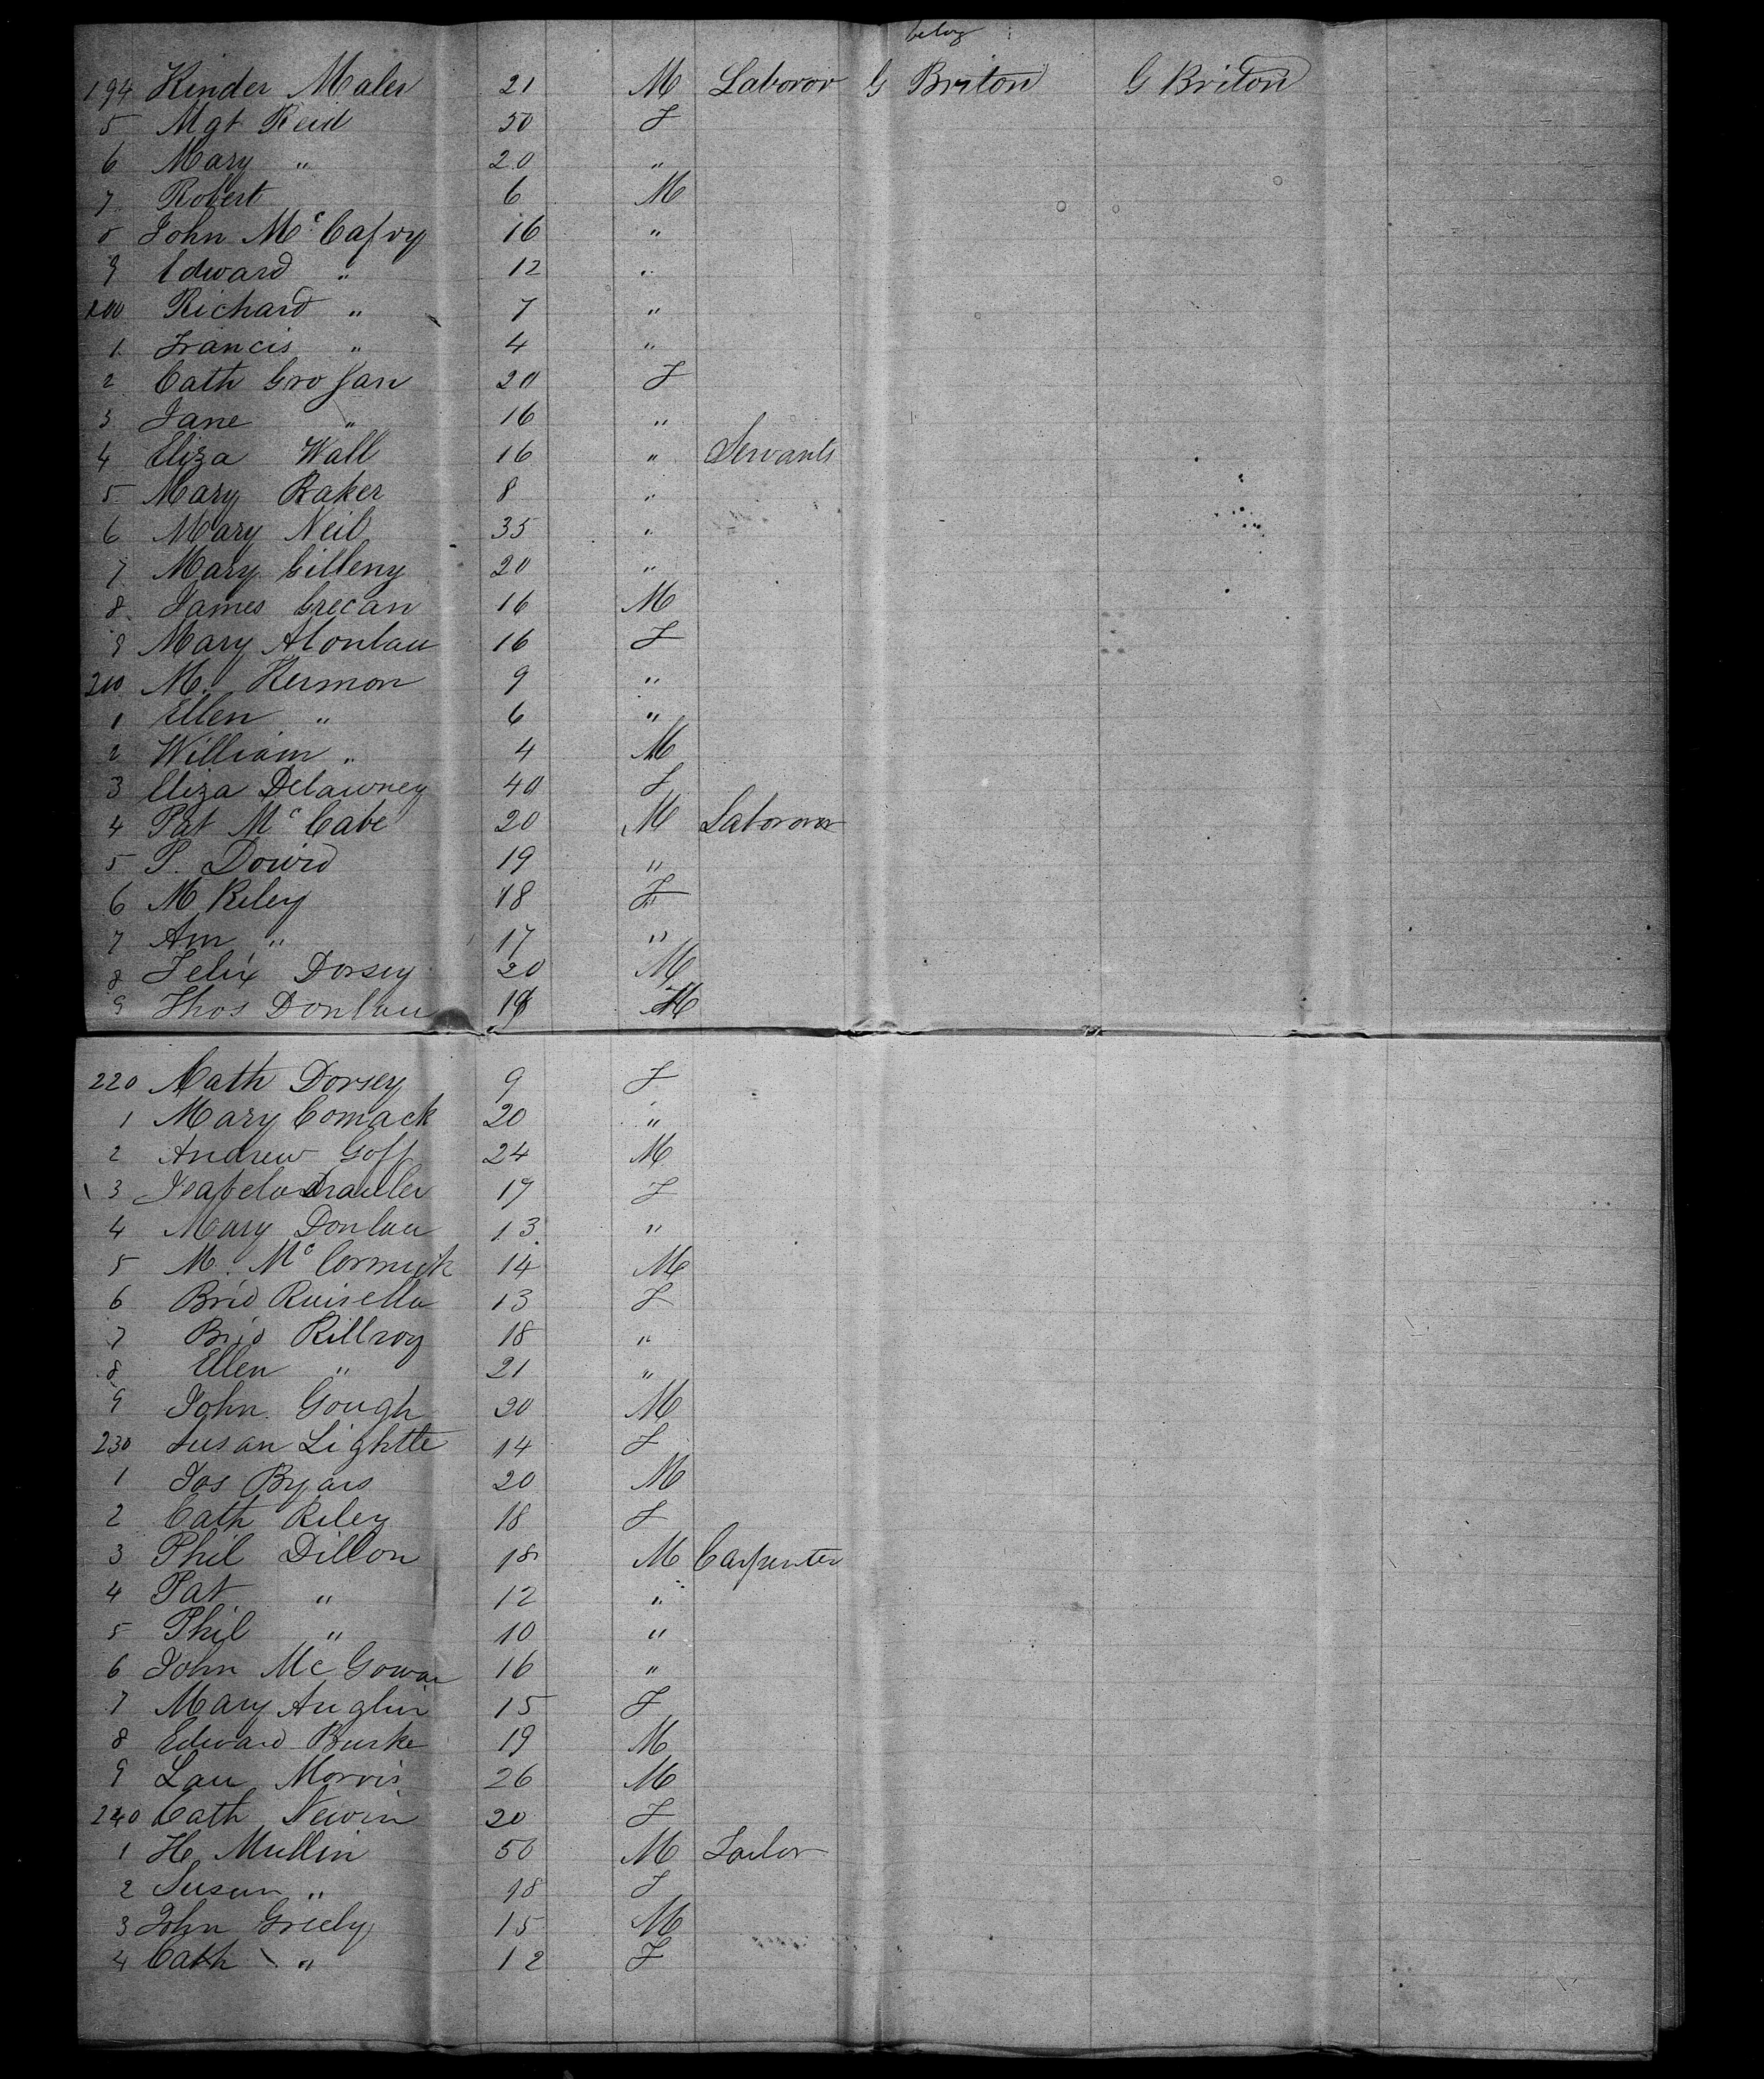 belong
194 Kinder Males 21 M Laboror G Briton G Briton
5 Mgt Reid 50 F
6 Mary " 20 "
7 Robert 6 M
8 John Mc Cafry 16 "
9 Edward " 12 "
200 Richard " 7 "
1 Francis " 4 "
2 Cath Grogan 20 F
3 Jane " 16 "
4 Eliza Wall 16 " Servants
5 Mary Baker 8 "
6 Mary Neil 35 "
7 Mary Gilleny 20 "
8 James Grecan 16 M
9 Mary Alonlau 16 F
210 M. Kermon 9 "
1 Ellen " 6 "
2 William " 4 M
3 Eliza Delawney 40 F
4 Pat Mc Cabe 20 M Laboror
5 P. Dowid 19 "
6 M Riley 18 F
7 Ann " 17 "
8 Felix Dorsey 20 M
9 Thos Donlau M
220 Cath Dorsey 9 F
1 Mary Comack 20 "
2 Andrew Goff 24 M
3 17 F
4 Mary Donlau 13 "
5 M. Mc Cormick 14 M
6 Brid 13 F
7 Brid Killroy 18 "
8 Ellen " 21 "
9 John Gough 20 M
230 Susan Lightte 14 F
1 Jos Byars 20 M
2 Cath Riley 18 F
3 Phil Dillon 18 M Carpenter
4 Pat " 12 "
5 Phil " 10 "
6 John Mc Gowan 16 "
7 Mary Anglin 15 F
8 Edward Burke 19 M
9 Lau Morris 26 M
240 Cath Newin 20 F
1 H. Mullin 50 M Tailor
2 Susan " 18 F
3 John Greely 15 M
4 Cath " 12 F